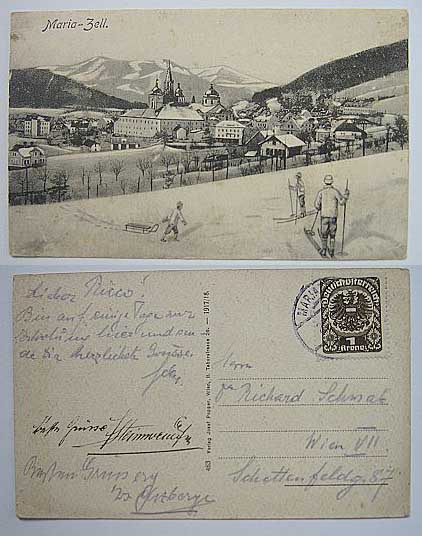 Maria-Zell.
Lieber Ricco!
Bin auf einige Tage zur
Erholung hier und sen
de Dir herzlichste Grüsse.
beste Grüsse
Besten Gruss
463 Verlag Josef Popper, Wien, II. Taborstrasse — 1917/18.
MARIA
Deutschösterreich
1
Krone
Herrn
Richard Schwab
Wien VII
Schottenfeldg. 87